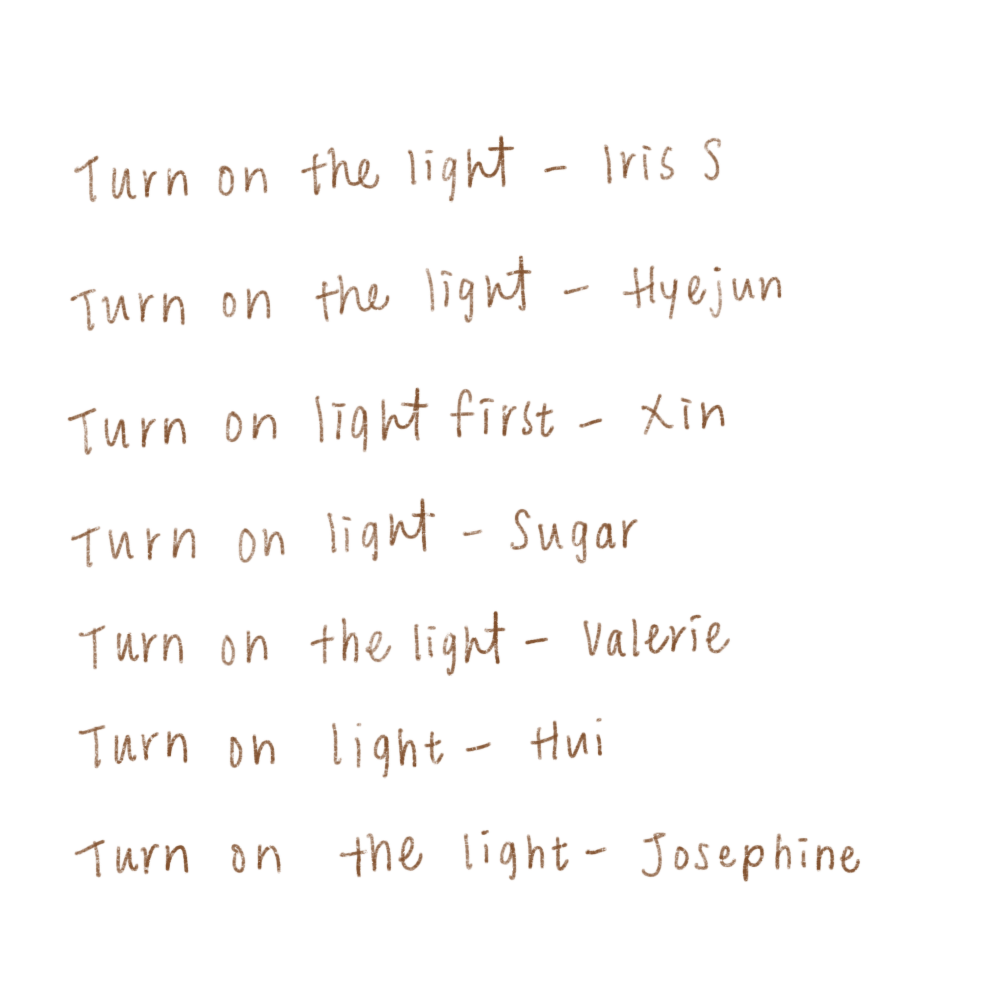 Turn on the light - Iris S
Turn on the light - Hyejun
Turn on light first - Xin
Turn on light - Sugar
Turn on the light - Valerie
Turn on light - Hui
Turn on the light - Josephine